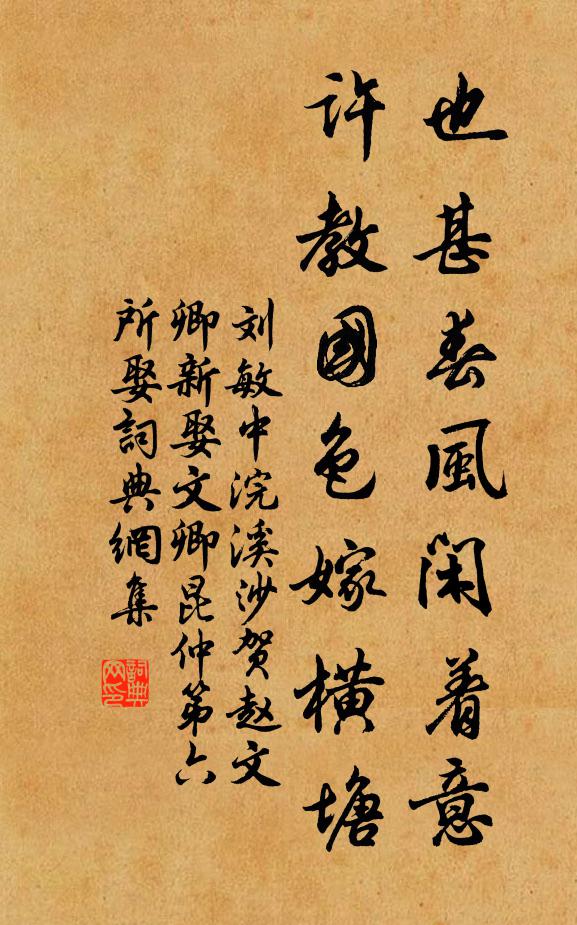 也甚春風閑着意
許教國色嫁橫塘
刘敏中浣溪沙贺赵文
卿新娶文卿昆仲第六
所娶詞典網集
詞典网印